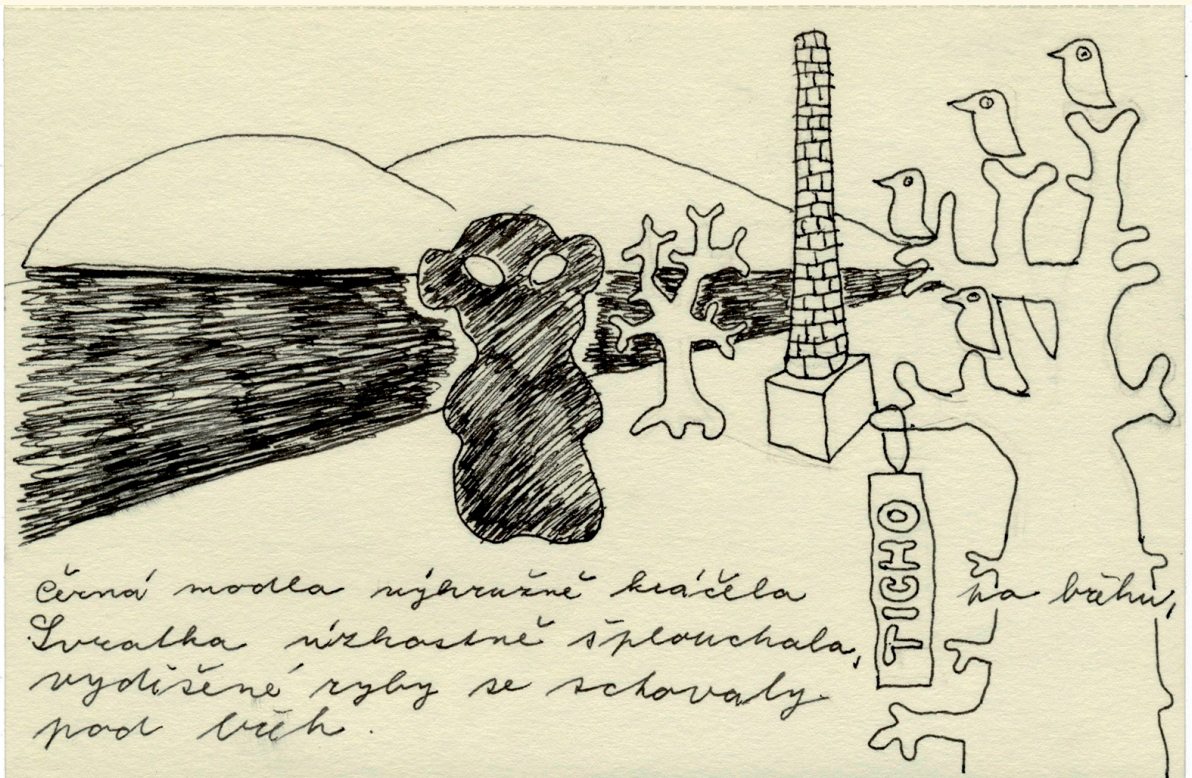 černá modla výhružně kráčela na břehu,
Svratka úzkostně šplouchala,
vyděšené ryby se schovaly
pod břeh.
TICHO